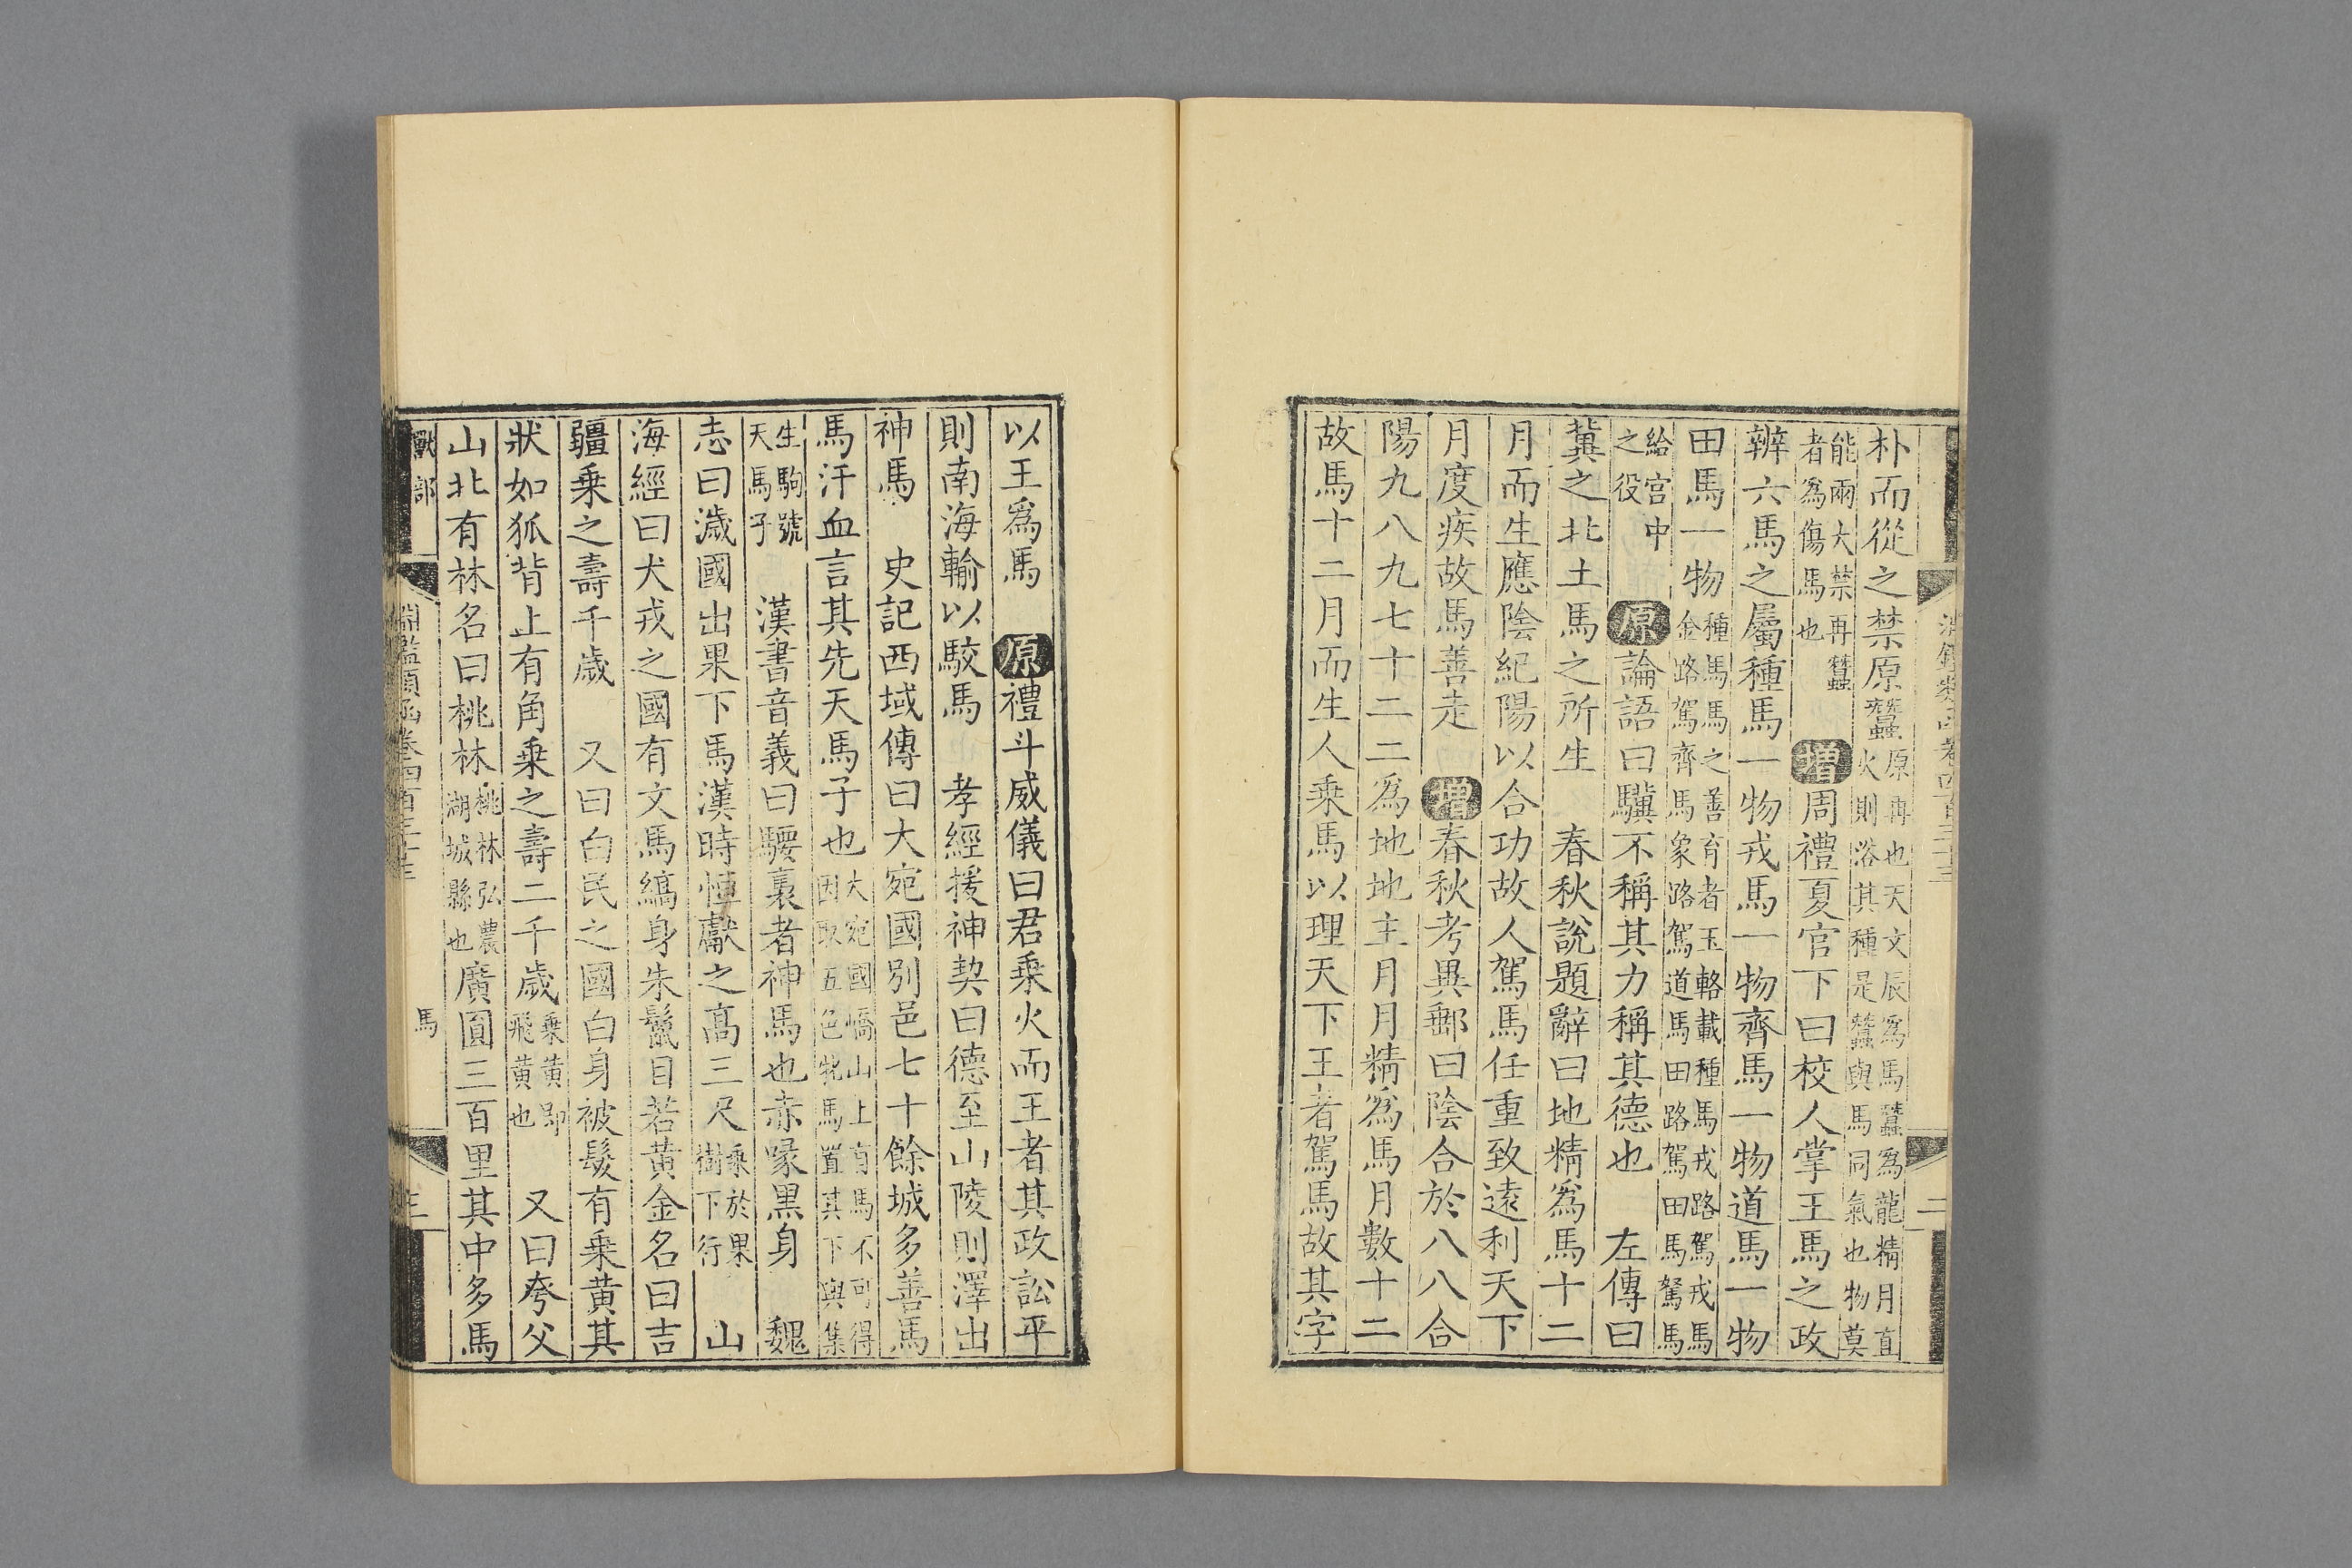 朴而從之禁原蠶原再也天文辰爲馬蠶爲龍精月直火則浴其種是蠶與馬同氣也物莫
能兩大禁再蠶者爲傷馬也增周禮夏官下曰校人掌王馬之政
辨六馬之屬種馬一物戎馬一物齊馬一物道馬一物
田馬一物種馬馬之善育者玉輅載種馬戎路駕戎馬金路駕齊馬象路駕道馬田路駕田馬駑馬
給宮中之役原論語曰驥不稱其力稱其德也 左傳曰
冀之北土馬之所生 春秋說題辭曰地精爲馬十二
月而生應陰紀陽以合功故人駕馬任重致遠利天下
月度疾故馬善走增春秋考異郵曰陰合於八八合
陽九八九七十二二爲地地主月月精爲馬月數十二
故馬十二月而生人乗馬以理天下王者駕馬故其字
二
以王爲馬 原禮斗威儀曰君乗火而王者其政訟平
則南海輸以駮馬 孝經援神契曰德至山陵則澤出
神馬 史記西域傳曰大宛國別邑七十餘城多善馬
馬汗血言其先天馬子也大宛國嶠山上有馬不可得因取五色牝馬置其下與集
生駒號天馬子 漢書音義曰騕褭者神馬也赤喙黑身 魏
志曰濊國出果下馬漢時恒獻之髙三尺乘於果樹下行 山
海經曰犬戎之國有文馬縞身朱鬣目若黃金名曰吉
疆乗之壽千歲 又曰白民之國白身被髮有乗黃其
狀如狐背上有角乗之壽二千歲乗黃即飛黃也 又曰夸父
山北有林名曰桃林桃林弘農湖城縣也廣圓三百里其中多馬
獸部 淵鑑類函卷四百三十三 馬 三